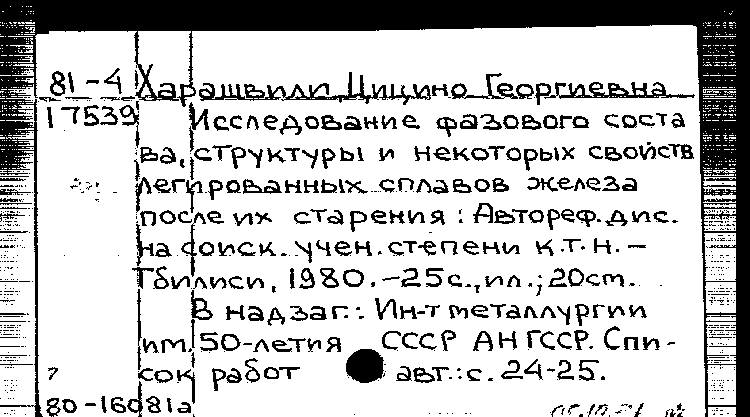 81-4 Харашвили, Цицино Георгиевна
17539 Исследование фазового соста
ва, структуры и некоторых свойств
легированных сплавов железа
после их старения: Автореф. дис.
на соиск. учен. степени к.т.н. –
Тбилиси, 1980. – 25 с., ил.; 20 cm.
В надзаг.: Ин-т металлургии
им. 50-летия СССР АН ГССР. Спи-
сок работ авт.: с. 24-25.
80-16081а